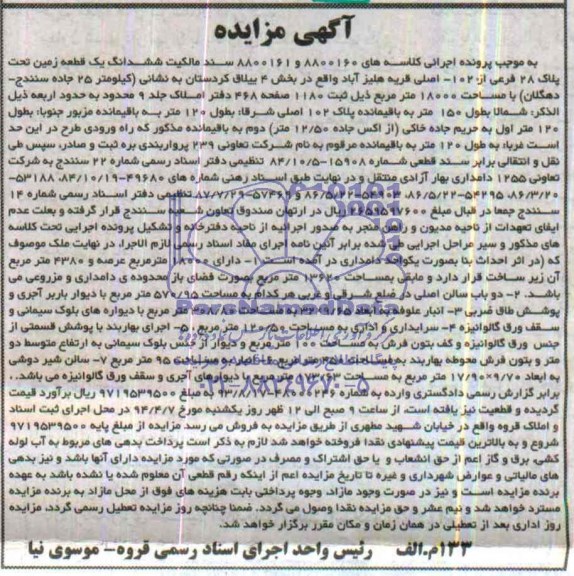 آگهی مزایده
به موجب پرونده اجرائی کلاسه های ۸۸۰۰۱۶۰ و ۸۸۰۰۱۶۱ سند مالکیت ششدانگ یک قطعه زمین تحت
پلاک ۲۸ فرعی از ۱۰۲- اصلی قریه هلیز آباد واقع در بخش ۴ ییلاق کردستان به نشانی (کیلومتر ۲۵ جاده سنندج-
دهگلان) با مساحت ۱۸۰۰۰ متر مربع ذیل ثبت ۱۱۸۰ صفحه ۴۶۸ دفتر املاک جلد ۹ محدود به حدود اربعه ذیل
الذکر: شمالا بطول ۱۵۰ متر به باقیمانده پلاک ۱۰۲ اصلی شرقا: بطول ۱۲۰ متر به باقیمانده مزبور جنوبا: بطول
۱۲۰ متر اول به حریم جاده خاکی (از اکس جاده ۱۲/۵۰ متر) دوم به باقیمانده مذکور که راه ورودی طرح در این حد
است غربا: به طول ۱۲۰ متر به باقیمانده مرقوم به نام شرکت تعاونی ۲۳۹ پرواربندی بره ثبت و صادر، سپس طی
نقل و انتقالی برابر سند قطعی شماره ۱۵۹۰۸-۸۴/۱۰/۵ تنظیمی دفتر اسناد رسمی شماره ۲۲ سنندج به شرکت
تعاونی ۱۲۵۵ دامداری بهار آزادی منتقل و در نهایت طبق اسناد رهنی شماره های ۴۹۶۸۰-۸۴/۱۰/۱۹ ۵۳۱۸۸-
۸۶/۳/۲۰ ۵۴۲۹۵-۸۶/۵/۲۲ تنظیمی دفتر اسناد رسمی شماره ۱۴
سنندج جمعا در قبال مبلغ ۲۶۵۹۵۹۷۶۰۰ ریال در ارتهان صندوق تعاون شعبه سنندج قرار گرفته و بعلت عدم
ایفای تعهدات از ناحیه مدیون و راهن منجر به صدور اجرائیه از ناحیه دفترخانه و تشکیل پرونده اجرایی تحت کلاسه
های مذکور و سیر مراحل اجرایی طی شده برابر آئین نامه اجرای مفاد اسناد رسمی لازم الاجرا، در نهایت ملک موصوف
که (در اثر احداث بنا بصورت یکواحد دامداری در آمده است) ۱- دارای مترمربع عرصه و ۴۳۸۰ متر مربع
آن زیر ساخت قرار دارد و مابقی بمساحت ۱۳۶۲۰ متر مربع بصورت فضای باز محدوده ی دامداری و مزروعی می
باشد. ۲- دو باب سالن اصلی در ضلع شرقی و غربی هر کدام به مساحت متر مربع با دیوار باربر آجری و
پوشش طاق ضربی ۳- انبار علوفه به ابعاد به مساحت متر مربع با دیواره های بلوک سیمانی و
سقف ورق گالوانیزه ۴- سرایداری و اداری به مساحت متر مربع ۵- اجرای بهاربند با پوشش قسمتی از
جنس ورق گالوانیزه و کف بتون فرش به مساحت متر مربع و دیوار از جنس بلوک سیمانی به ارتفاع متوسط دو
متر و بتون فرش محوطه بهاربند به مساحت متر مربع ۶- انبار به مساحت ۹۵ متر مربع ۷- سالن شیر دوشی
به ابعاد ۲۹/۷۰*۱۷/۹ متر مربع به مساحت متر مربع با دیوارهای آجری و سقف ورق گالوانیزه می باشد.
برابر گزارش رسمی دادگستری وارده به شماره به مبلغ ۹۷۱۹۵۳۹۵۰۰ ریال برآورد قیمت
گردیده و قطعیت نیز یافته است. از ساعت ۹ صبح الی ۱۲ ظهر روز یکشنبه مورخ ۹۴/۴/۷ در محل اجرای ثبت اسناد
و املاک قروه واقع در خیابان شهید مطهری از طریق مزایده به فروش می رسد مزایده از مبلغ پایه ۹۷۱۹۵۳۹۵۰۰
شروع و به بالاترین قیمت پیشنهادی نقدا فروخته خواهد شد لازم به ذکر است پرداخت بدهی های مربوط به آب لوله
کشی، برق و گاز اعم از حق انشعاب و یا حق اشتراک و مصرف در صورتی که مورد مزایده دارای آنها باشد و نیز بدهی
های مالیاتی و عوارض شهرداری و غیره تا تاریخ مزایده اعم از اینکه رقم قطعی آن معلوم شده یا نشده باشد به عهده
برنده مزایده است و نیز در صورت وجود مازاد، وجوه پرداختی بابت هزینه های فوق از محل مازاد به برنده مزایده
مسترد خواهد شد و نیم عشر و حق مزایده نقدا وصول می گردد. ضمنا چنانچه روز مزایده تعطیل رسمی گردد، مزایده
روز اداری بعد از تعطیلی در همان زمان و مکان مقرر برگزار خواهد شد.
۱۳۳م.الف رئیس واحد اجرای اسناد رسمی قروه- موسوی نیا